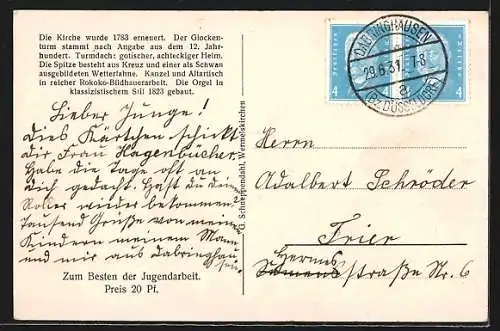 Die Kirche wurde 1783 erneuert. Der Glocken-
turm stammt nach Angabe aus dem 12. Jahr-
hundert. Turmdach: gotischer, achteckiger Helm.
Die Spitze besteht aus Kreuz und einer als Schwan
ausgebildeten Wetterfahne. Kanzel und Altartisch
in reicher Rokoko-Bildhauerarbeit. Die Orgel in
klassizistischem Stil 1823 gebaut.
Lieber Junge!
Dies Kärtchen schickt
dir Frau Hagenbücher.
Habe die Tage oft an
dich gedacht. Hast du deinen
Roller wieder bekommen?
Tausend Grüße von meinen
Kindern meinem Mann
und mir aus Dabringhau
sen.
Zum Besten der Jugendarbeit.
Preis 20 Pf.
G. Schneppendahl, Wermelskirchen
DABRINGHAUSEN
29.6.31. 7-8
a
(BZ. DÜSSELDORF)
4
4
Herrn
Adalbert Schröder
Trier
Hermes
straße Nr. 6